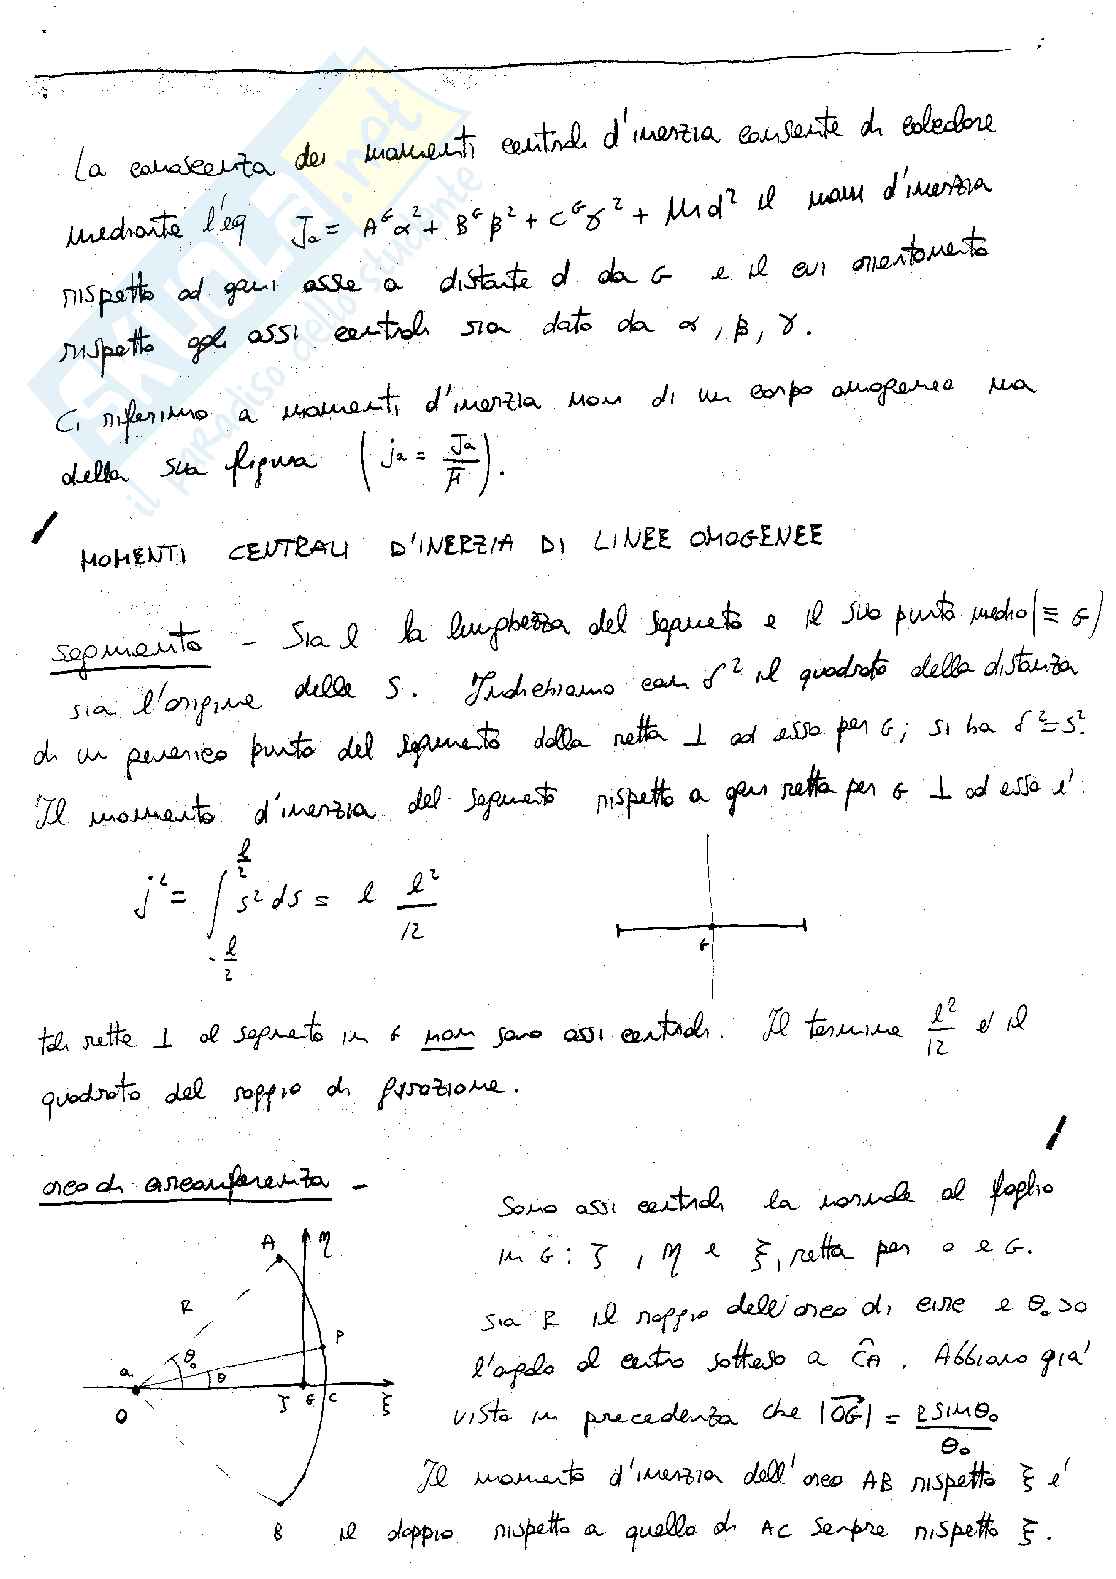 La conoscenza dei momenti centrali d'inerzia consente di calcolare
mediante l'eq Jₐ = Aᴳα² + Bᴳβ² + Cᴳγ² + Md² il mom d'inerzia
rispetto ad ogni asse a distante d da G e il cui orientamento
rispetto agli assi centrali sia dato da α, β, γ.
Ci riferiamo a momenti d'inerzia non di un corpo omogeneo ma
della sua figura (jₐ = Jₐ/μ).
MOMENTI CENTRALI D'INERZIA DI LINEE OMOGENEE
segmento - Sia l la lunghezza del segmento e il suo punto medio (≡ G)
sia l'origine delle s. Indichiamo con δ² il quadrato della distanza
di un generico punto del segmento dalla retta ⊥ ad esso per G; si ha δ²=s².
Il momento d'inerzia del segmento rispetto a ogni retta per G ⊥ ad esso e'
j² = ∫_{-l/2}^{l/2} s² ds = l l²/12
G
tali rette ⊥ al segmento in G non sono assi centrali. Il termine l²/12 e' il
quadrato del raggio di girazione.
arco di circonferenza -
Sono assi centrali la normale al foglio
in G: ζ, η e ξ, retta per o e G.
sia R il raggio dell'arco di circ e θ₀>0
l'angolo al centro sotteso a ĈA. Abbiamo già
visto in precedenza che |OG| = R sinθ₀/θ₀
Il momento d'inerzia dell'arco AB rispetto ξ e'
il doppio rispetto a quello di AC sempre rispetto ξ.
A η
R P
θ₀ θ
a
O ζ G C ξ
B
SKUOLA.net
il paradiso dello studente